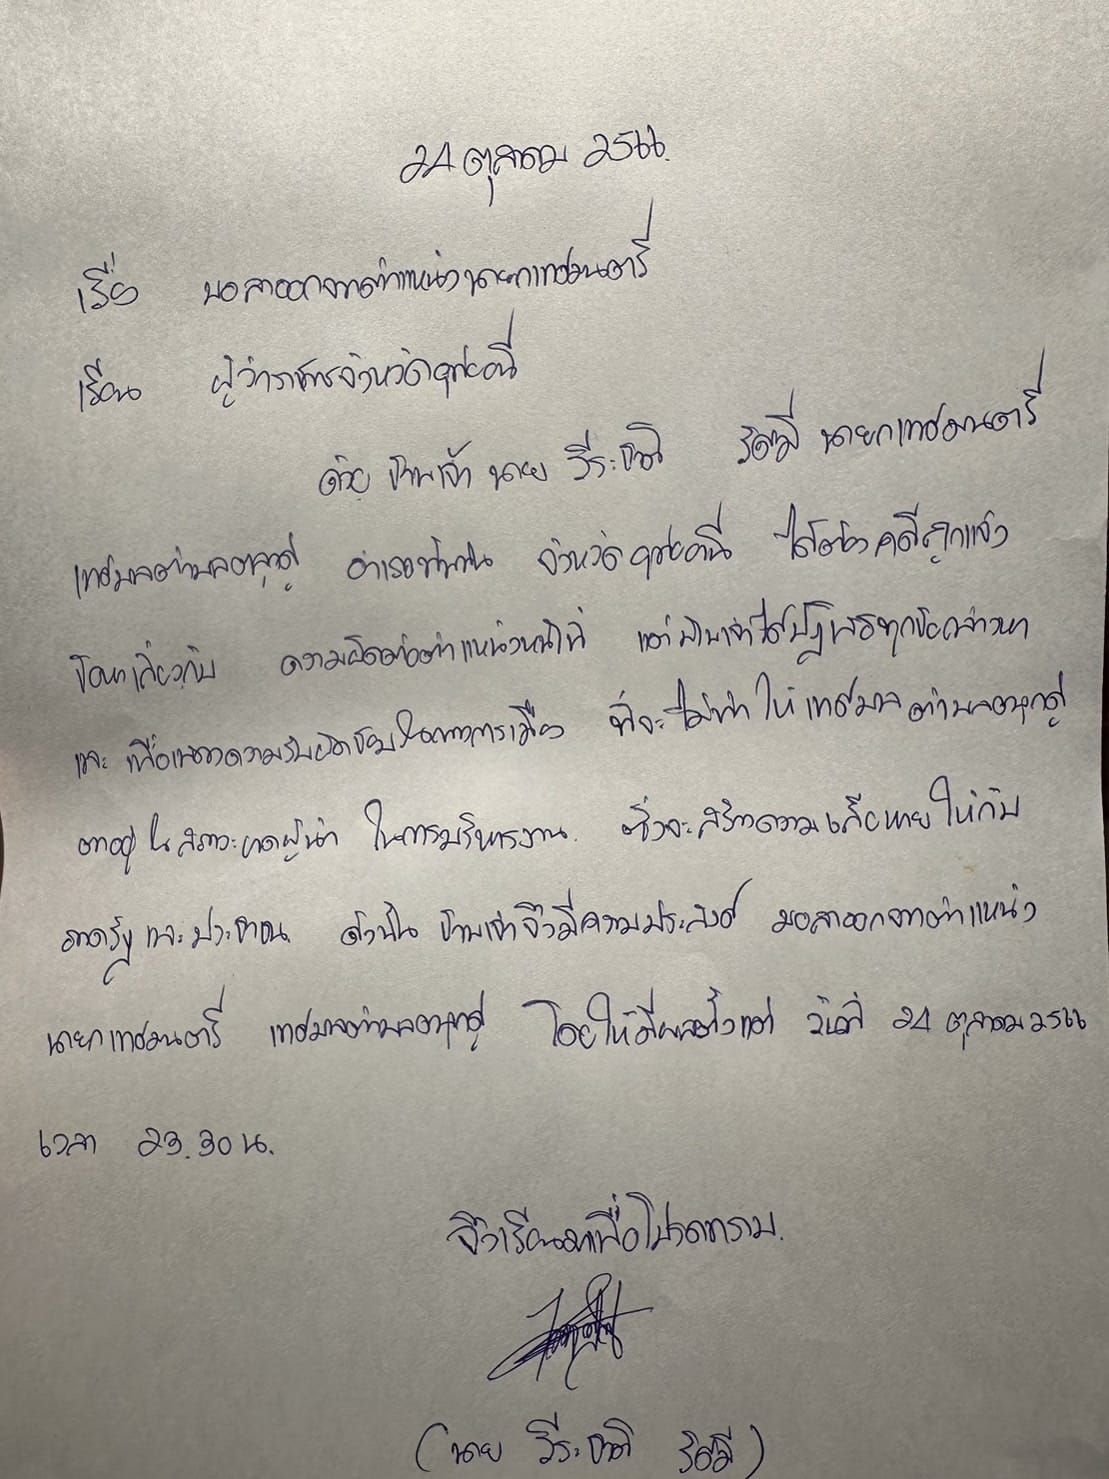 24 ตุลาคม 2566.
เรื่อง ขอลาออกจากตำแหน่งนายกเทศมนตรี
เรียน ผู้ว่าราชการจังหวัดอุทัยธานี
ด้วย ข้าพเจ้า นาย วีระชาติ รัศมี นายกเทศมนตรี
เทศบาลตำบลตลุกดู่ อำเภอทัพทัน จังหวัดอุทัยธานี ได้ต้องคดีถูกแจ้ง
ข้อหาเกี่ยวกับ ความผิดต่อตำแหน่งหน้าที่ แต่ข้าพเจ้าได้ปฏิเสธทุกข้อกล่าวหา
และ เพื่อแสดงความรับผิดชอบในทางการเมือง ที่จะไม่ทำให้เทศบาลตำบลตลุกดู่
ตกอยู่ในสภาวะขาดผู้นำ ในการบริหารงาน. ซึ่งจะสร้างความเสียหายให้กับ
ภาครัฐและประชาชน ดังนั้น ข้าพเจ้าจึงมีความประสงค์ ขอลาออกจากตำแหน่ง
นายกเทศมนตรี เทศบาลตำบลตลุกดู่ โดยให้มีผลตั้งแต่ วันที่ 24 ตุลาคม 2566
เวลา 23.30 น.
จึงเรียนมาเพื่อโปรดทราบ.
(นาย วีระชาติ รัศมี)